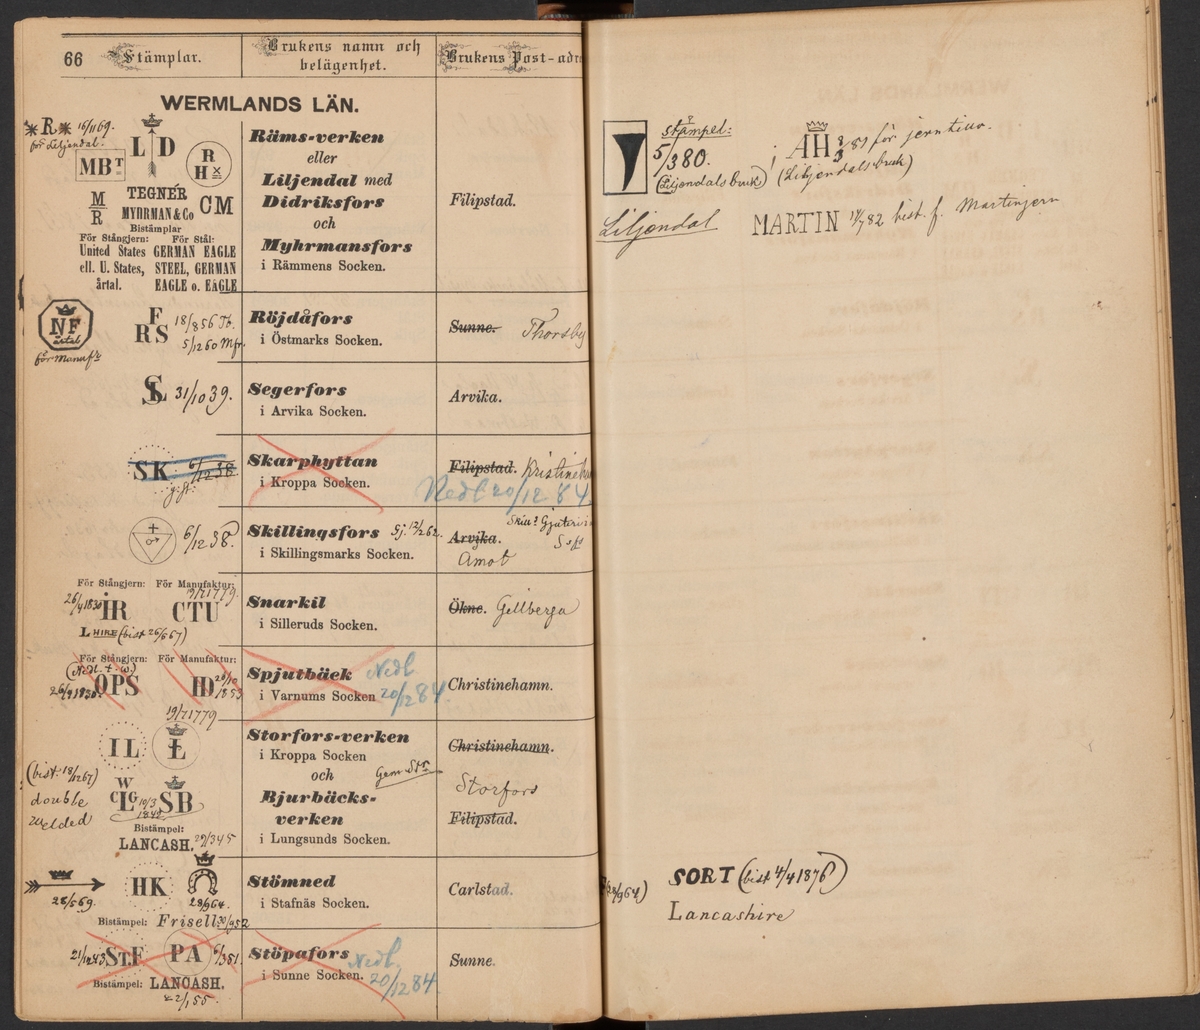 66
Stämplar.
Brukens namn och
belägenhet.
Brukens Post-adre
WERMLANDS LÄN.
R 16/11 69.
för Liljendal.
L D
MBT
R
H
M
R
TEGNÉR
MYHRMAN & Co
CM
Bistämplar
För Stångjern: För Stål:
United States GERMAN EAGLE
ell. U. States, STEEL, GERMAN
årtal. EAGLE o. EAGLE
Räms-verken
eller
Liljendal med
Didriksfors
och
Myhrmansfors
i Rämmens Socken.
Filipstad.
NF
årtal
för Manufr
F
RS
18/8 56 Th.
5/12 60 Mfr.
Röjdåfors
i Östmarks Socken.
Sunne. Thorsby
SL 31/10 39.
Segerfors
i Arvika Socken.
Arvika.
SK 6/12 38
Skarphyttan
i Kroppa Socken.
Filipstad.
Nedl 20/12 84.
6/12 38.
Skillingsfors
i Skillingsmarks Socken.
Arvika.
Amot
För Stångjern: För Manufaktur:
26/4 1830
19/7 1779.
IR CTU
L HIRE (bist 26/6 67)
Snarkil
i Silleruds Socken.
Ökne. Gillberga
För Stångjern: För Manufaktur:
26/4 1830.
OPS HD
20/10 1853
Spjutbäck Nedl.
i Varnums Socken 20/12 84.
Christinehamn.
19/7 1779
I L
L
(bist. 18/12 67)
double
welded
W
CLG 10/3 1842 SB
Bistämpel:
LANCASH. 29/3 45
Storfors-verken
i Kroppa Socken
och
Bjurbäcks-
verken
i Lungsunds Socken.
Christinehamn.
Storfors
Filipstad.
28/5 69.
HK
28/9 64.
Bistämpel: Frisell 30/9 52
Stömned
i Stafnäs Socken.
Carlstad.
21/12 43 ST.F PA 6/3 51.
Bistämpel: LANCASH.
22/1 55.
Stöpafors Nedl.
i Sunne Socken. 20/12 84
Sunne.
stämpel:
5/3 80.
(Liljendals bruk)
AH 3/3 81 för jerntillv.
(Liljendals bruk)
Liljendal
MARTIN 14/7 82 bist. f. Martinjern
28/9 64)
SORT (bist 4/4 1876)
Lancashire